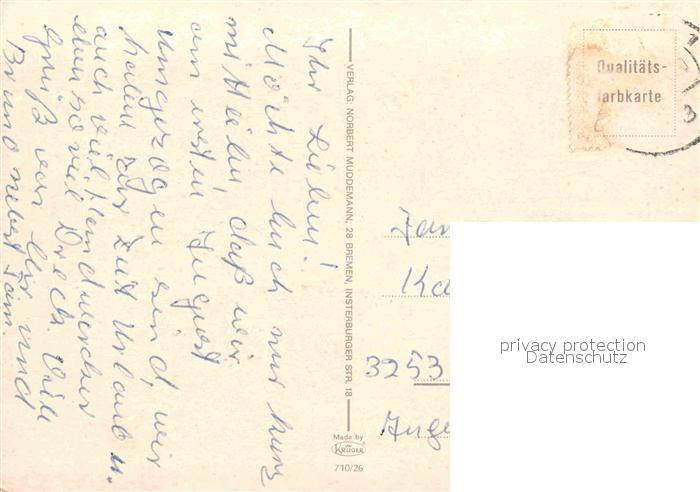 Ihr Lieben!
Möchte Euch nur kurz
mitteilen daß wir
am ersten August
umgezogen sind, wir
haben zur Zeit Urlaub u.
auch viel Handwerker
ebensoviel Dreck. Viele
Grüße von Uns und
Bruno nebst Fam.
VERLAG: NORBERT MUDDEMANN, 28 BREMEN, INSTERBURGER STR. 18
Made by
KRÜGER
710/26
Qualitäts-
farbkarte
Fam
Ka
3253
privacy protection
Datenschutz